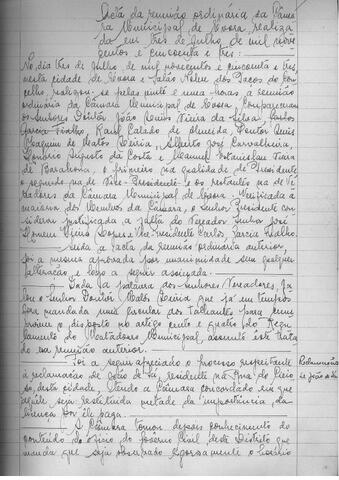 Acta da reunião ordinária da Câma-
ra Municipal de Évora, realiza
da em três de Julho de mil nove
centos e cincoenta e três:
No dia três de Julho de mil novecentos e cincoenta e três,
nesta cidade de Évora e Salão Nobre dos Paços do Con
celho, realizou-se, pelas quinze e uma horas, a reunião
ordinária da Câmara Municipal de Évora. Compareceram
os Senhores Doutor João Luiz Vieira da Silva, Carlos
Garcia Fialho, Raul Calado de Almeida, Doutor Luis
Joaquim de Matos, Alberto José Carvalheira,
Augusto da Costa e Manuel Estanislau Vieira
de Barahona, o primeiro na qualidade de Presidente
o segundo na de Vice-Presidente e os restantes na de Ve
readores da Câmara Municipal de Évora. Verificada a
maioria dos membros da Câmara, o Senhor Presidente con
siderou justificada a falta do Vereador Senhor José
Vice-Presidente Carlos Garcia Fialho.
Lida a acta da reunião ordinária anterior,
foi a mesma aprovada por unanimidade sem qualquer
alteração e logo a seguir assinada.
Dada a palavra aos Senhores Vereadores, fa
lou o Senhor Doutor Matos que já em tempos
fora mandada uma circular aos talhantes para cum
prirem o disposto no artigo cento e quatro do Regu
lamento do Matadouro Municipal, assunto este tratado
na reunião anterior.
Foi a seguir apreciado o processo respeitante
à reclamação de João de residente na Rua do
desta cidade, tendo a Câmara concordado em que
àquele seja restituída metade da importância da
licença por ele paga.
Reclamação
de João de
A Câmara tomou depois conhecimento do
conteúdo do ofício do Governo Civil deste Distrito que
manda que seja observado rigorosamente o horário